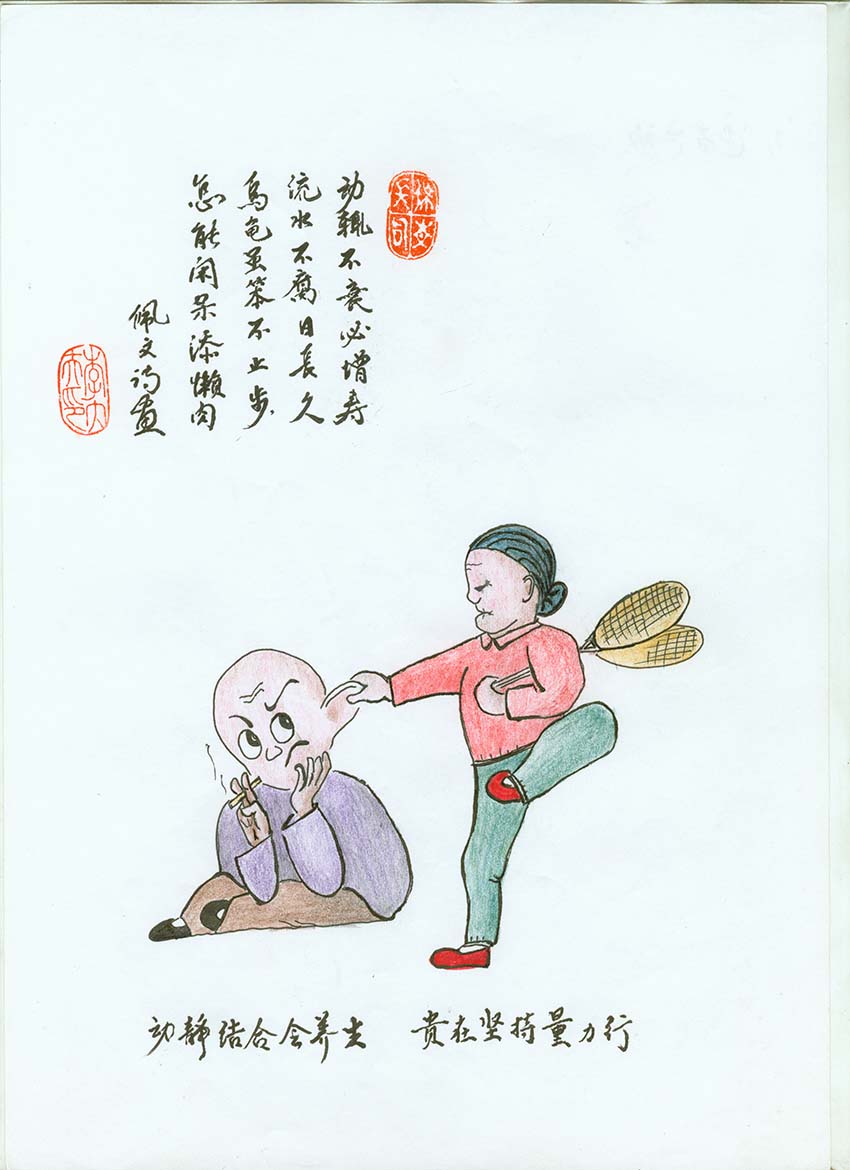 动辄不衰必增寿
流水不腐日长久
乌龟虽笨不止步
怎能闲呆添懒肉
佩文诗画
动静结合会养生 贵在坚持量力行